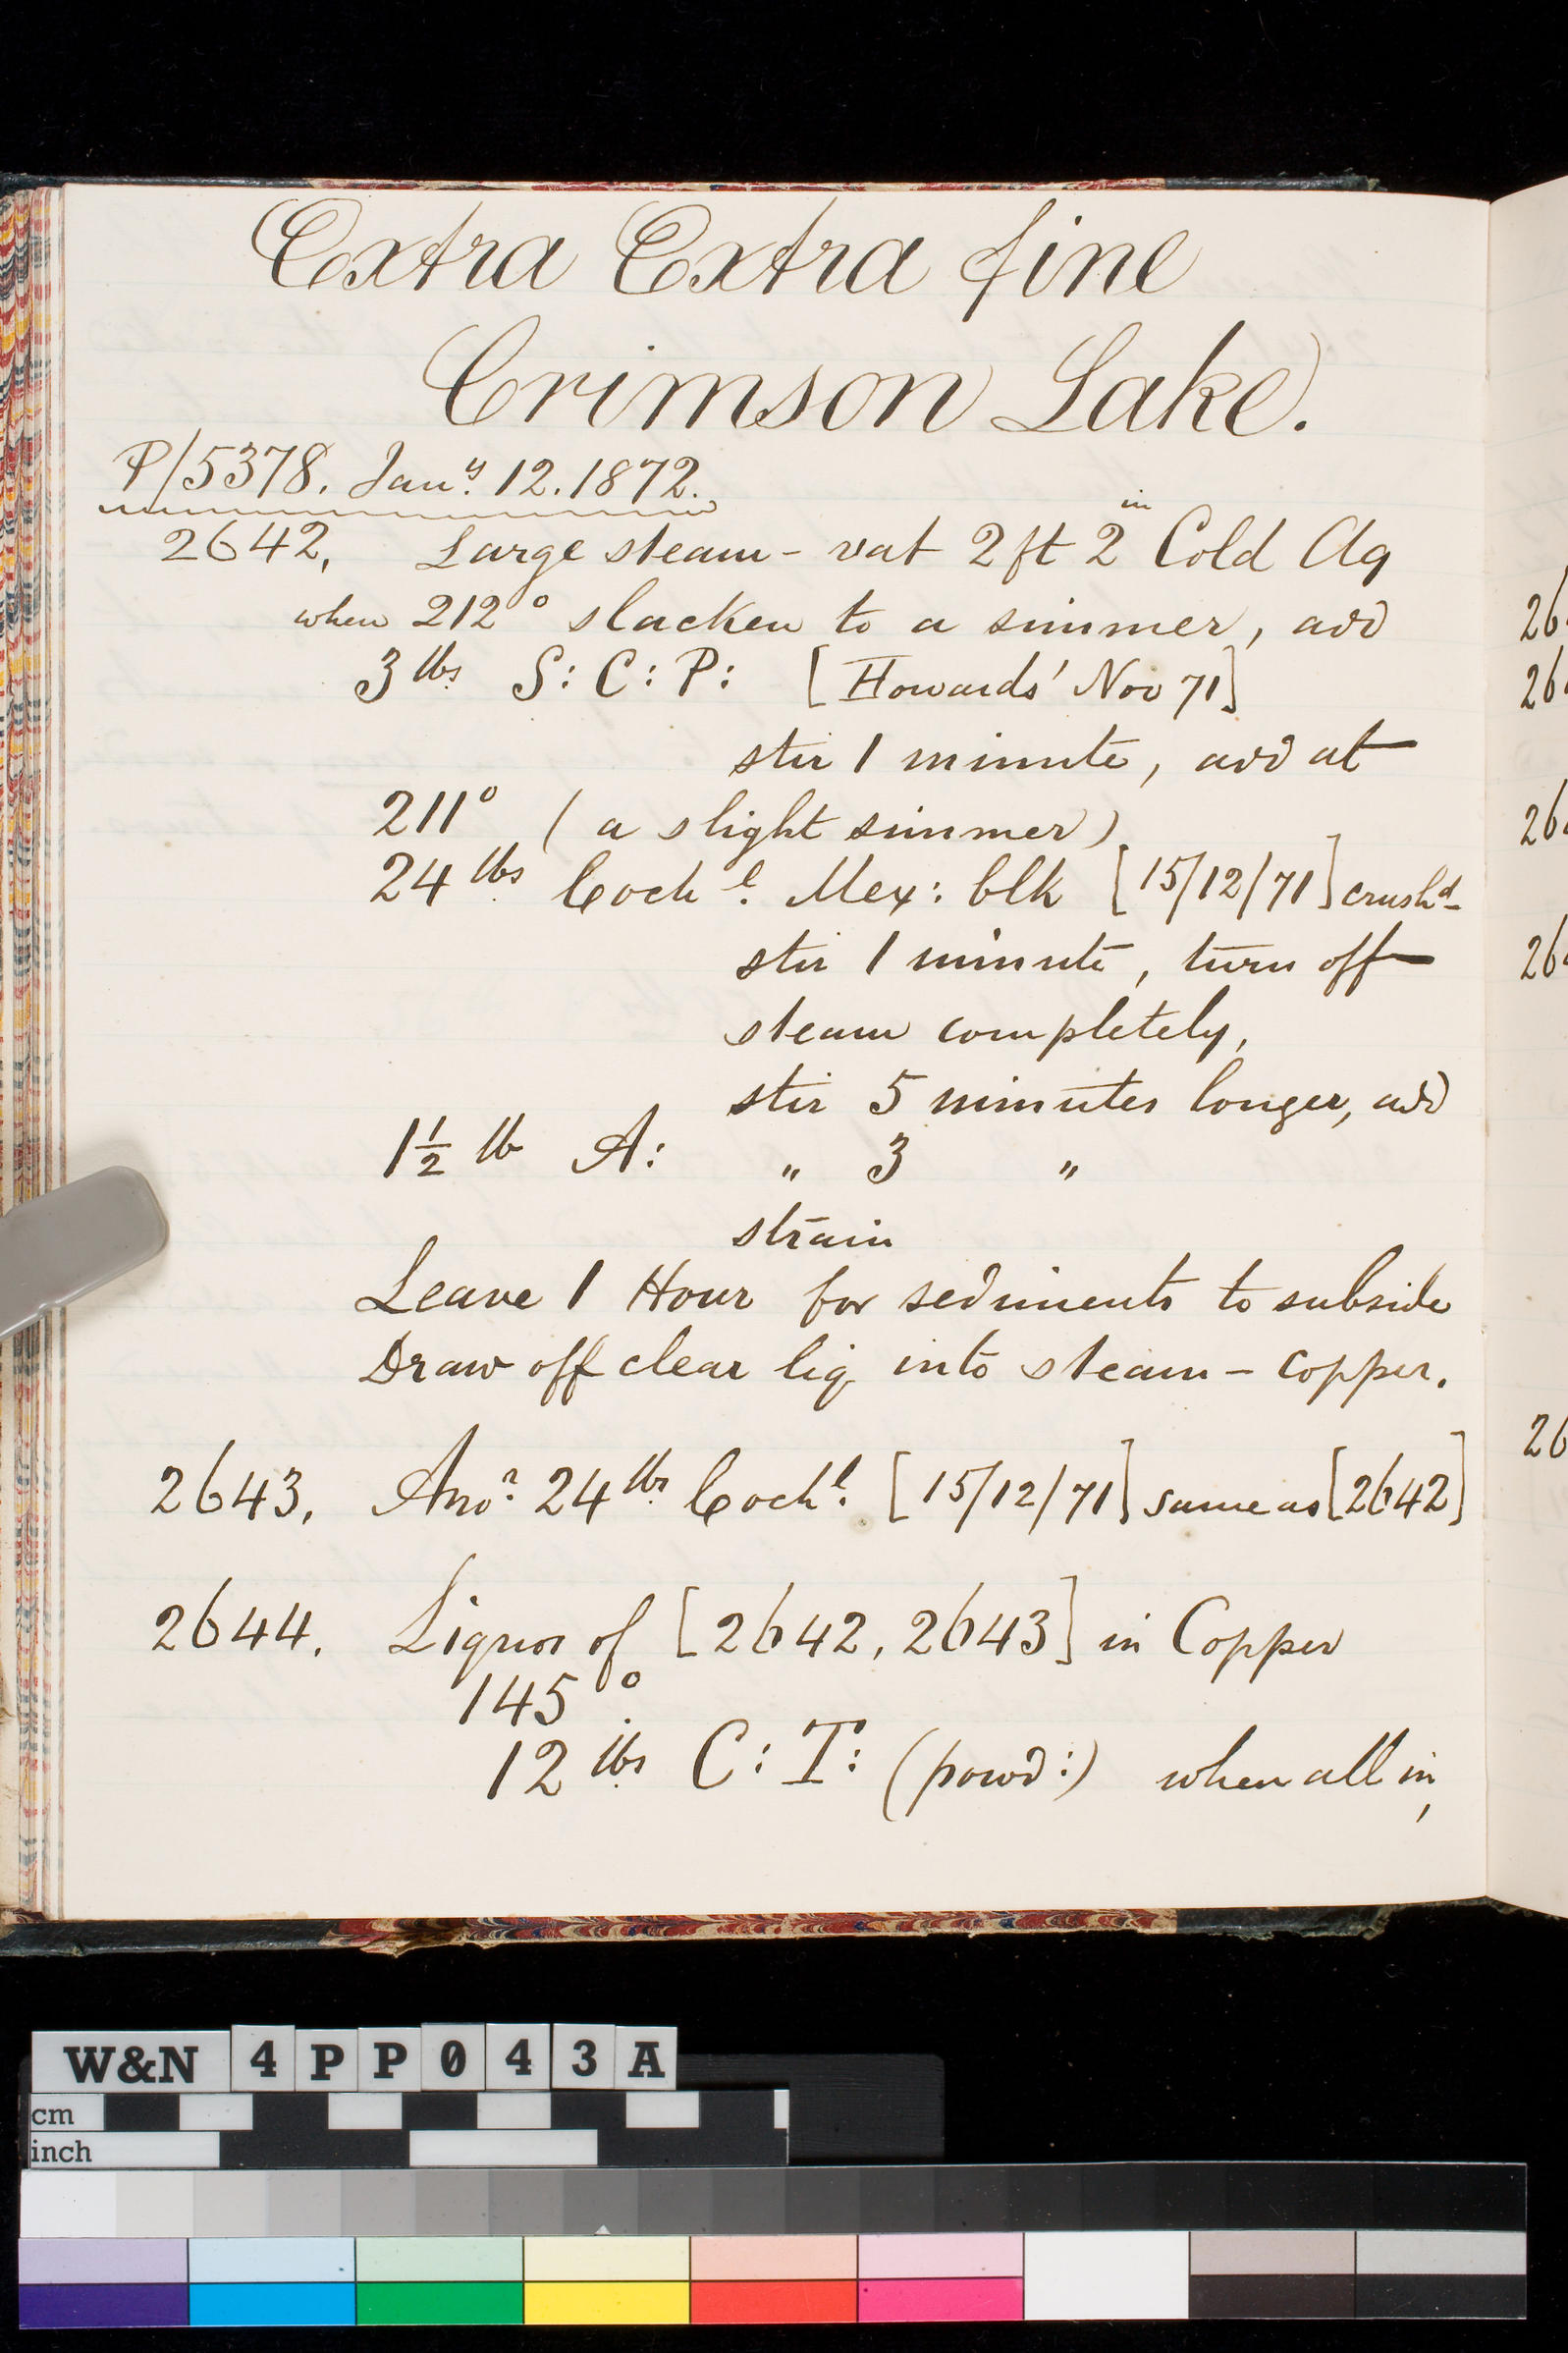 Extra Extra fine
Crimson Lake.
P/5378. Janʸ. 12. 1872.
2642, Large steam - vat 2 ft 2 in Cold Aq
when 212° slacken to a simmer, add
3 lbs S: C: P: [Howards' Nov 71]
stir 1 minute, add at
211° (a slight simmer)
24 lbs Cochˡ. Mex: blk [15/12/71] crushᵈ
stir 1 minute, turn off
steam completely,
stir 5 minutes longer, add
1½ lb A: " 3 "
strain
Leave 1 Hour for sediments to subside
Draw off clear liq into steam - copper.
2643. Anoʳ. 24 lbs Cochˡ. [15/12/71] same as [2642]
2644. Liquor of [2642, 2643] in Copper
145°.
12 lbs C: T: (powd:) when all in,
26
26
26
26
26
W&N 4PP043A
cm
inch